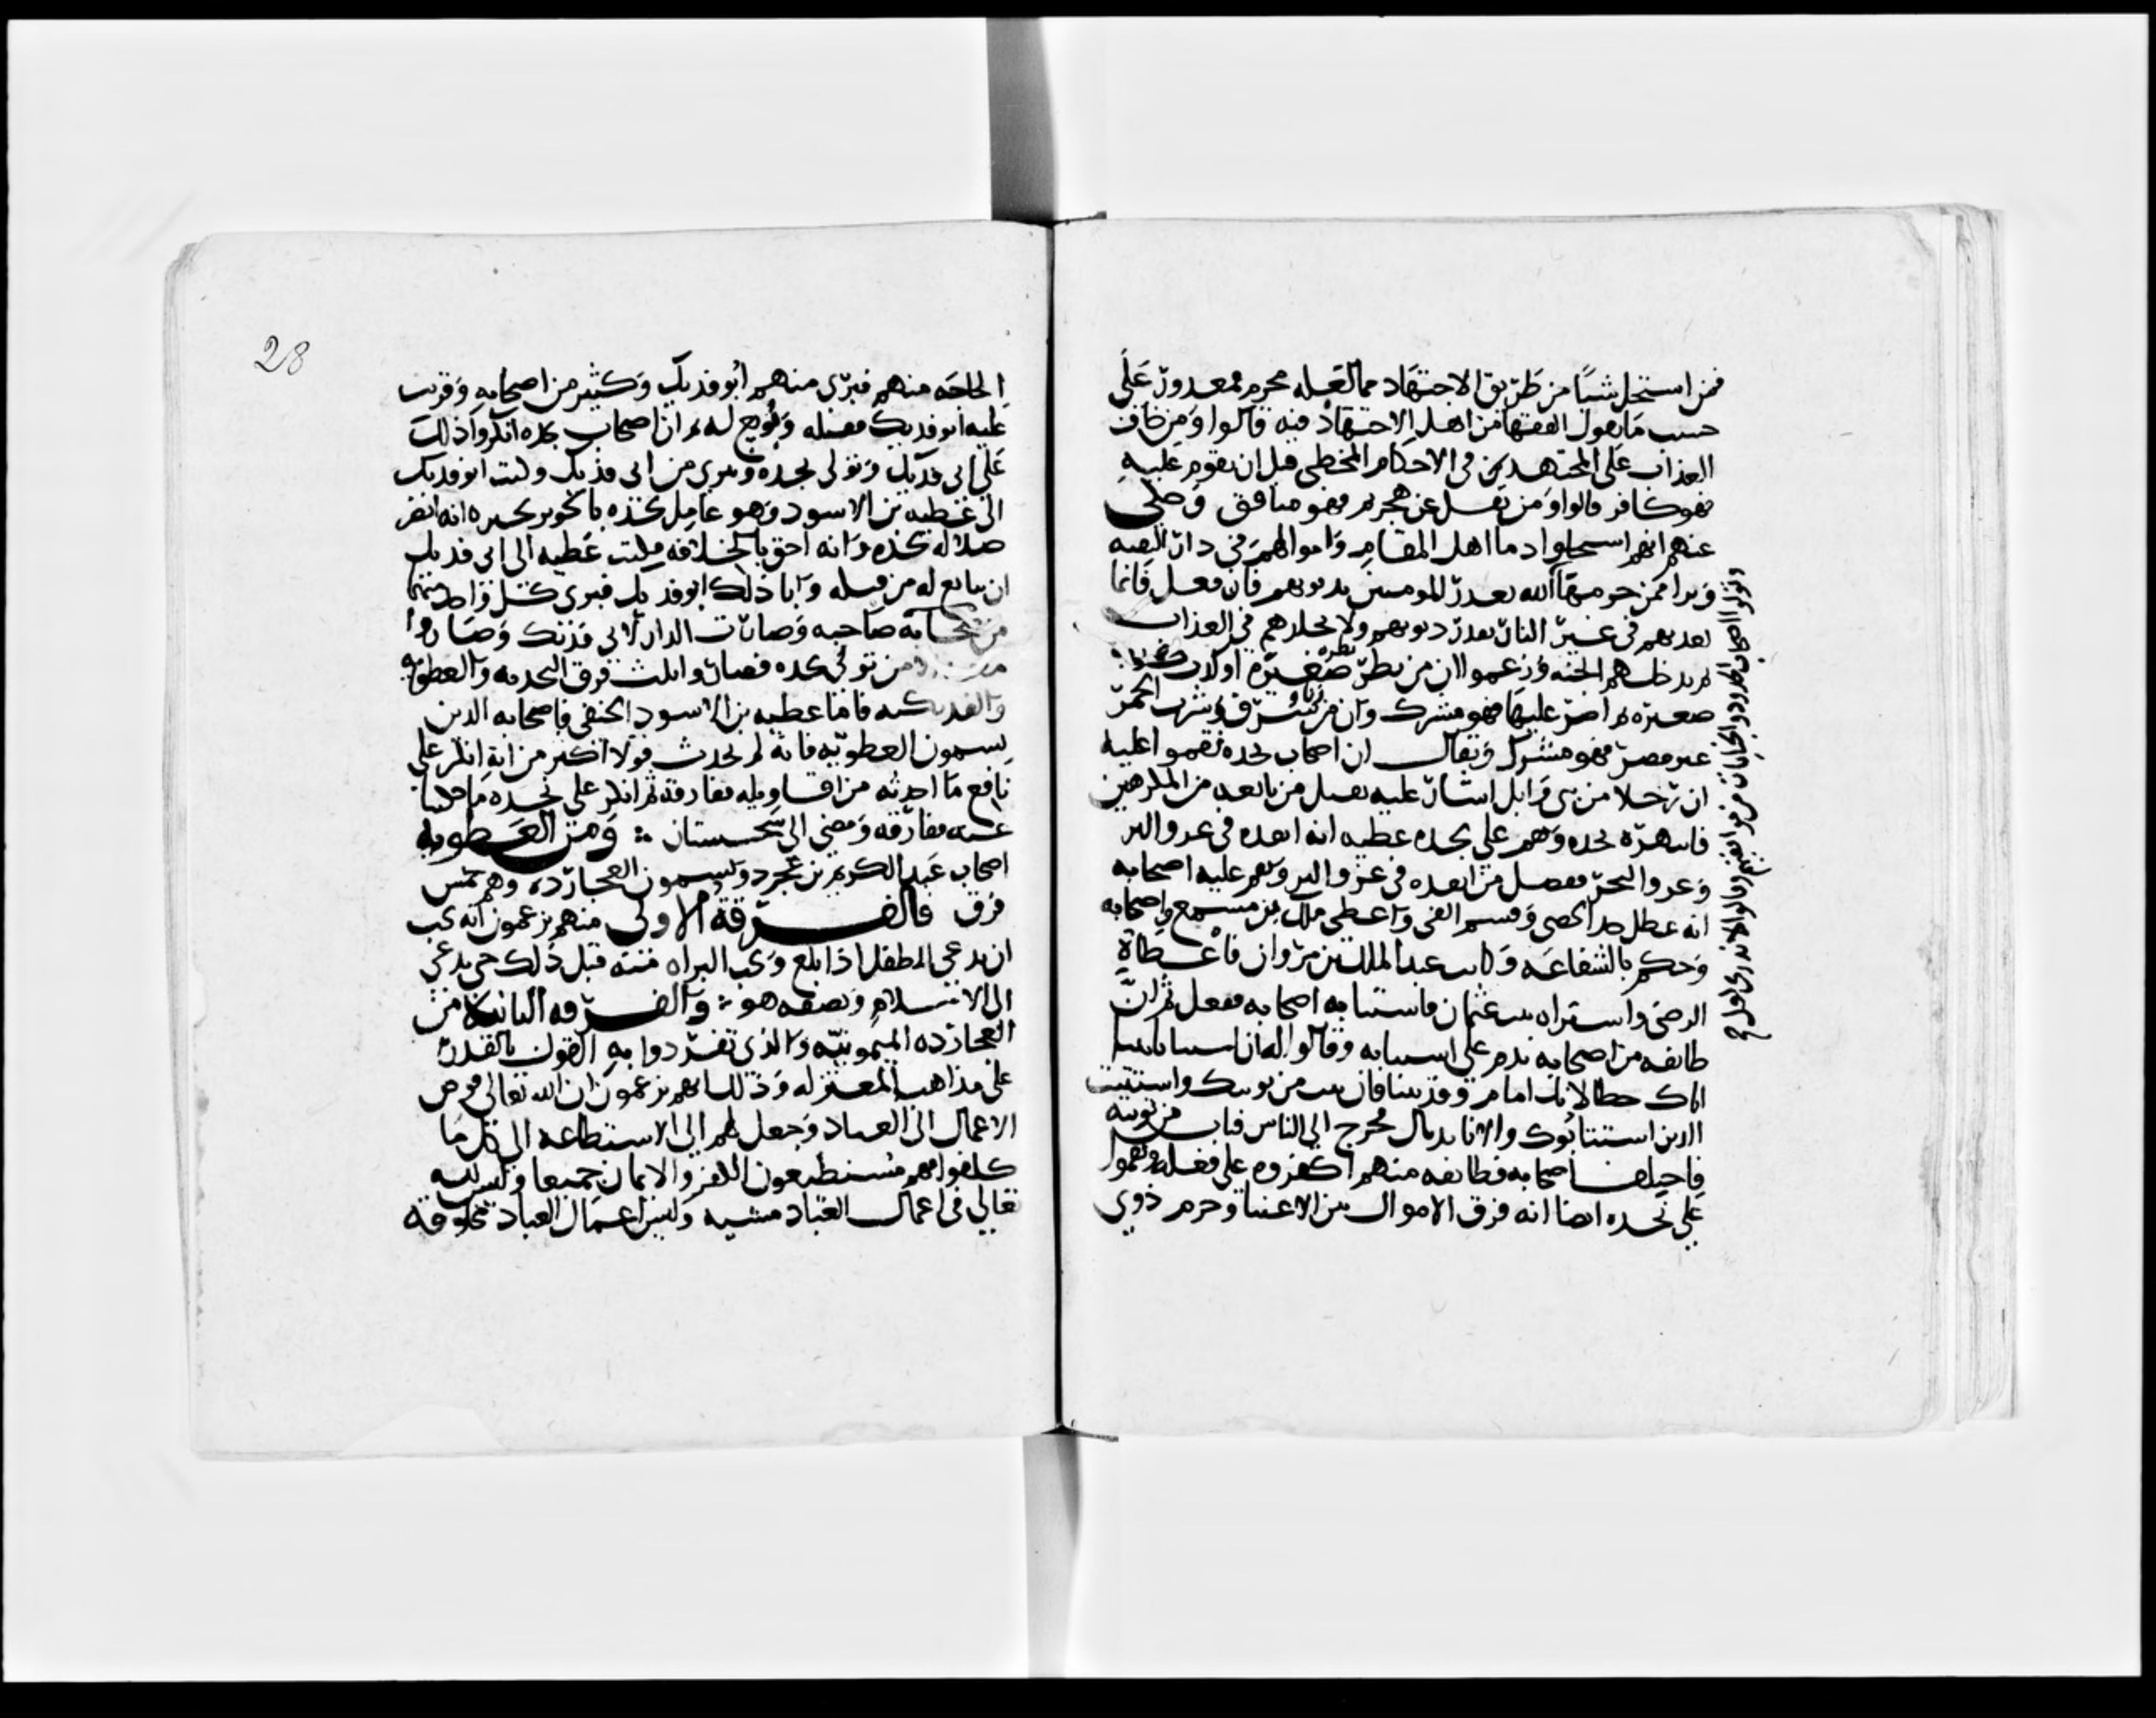 فمن استحل شيئا من طريق الاجتهاد مما لعله محرم فمعذور على
حسب ما يقول الفقها من اهل الاجتهاد فيه قالوا ومن خاف
العذاب على المجتهدين في الاحكام المخطي قبل ان يقوم عليه
فهو كافر قالوا ومن ثقل عن هجرتهم فهو منافق وحكي
عنهم انهم استحلوا دما اهل المقام واموالهم في دار التقيه
وبروا ممن حرمها الله يعذب المومنين بذنوبهم فان فعل فانما
يعذبهم في غير النار بقدر ذنوبهم ولا يخلدهم في العذاب
ثم يدخلهم الجنه وزعموا ان من نظر نظره صغيره او كذب كذبه
صغيره ثم اصر عليها فهو مشرك وان من زنا وسرق وشرب الخمر
غير مصر فهو مشرك ويقال ان اصحاب نجده نقموا عليه
ان رجلا من بني وايل اشار عليه بقتل من تابعه من المكرهين
فانتهره نجده ونقم على نجده عطيه انه انفذه في غزو البر
وغزو البحر ففضل من انفذه في غزو البر ونقم عليه اصحابه
انه عطل حد الخمر وقسم الفي واعطى ملك بن مسمع واصحابه
وحكم بالشفاعه وكاتب عبد الملك بن مروان فاعطاه
الرضى واشترى بنت عثمان فاستتابه اصحابه ففعل ثم ان
طايفه من اصحابه ندم على استتابته وقالوا له ان استتابتنا
اياك خطا لانك امام وقد تبنا فان تبت من توبتك واستتبت
الذين استتابوك والا نابذناك فخرج الى الناس فتاب من توبته
فاختلف اصحابه فطايفه منهم اكفروه على فعله ونقموا
على نجده ايضا انه فرق الاموال بين الاغنيا وحرم ذوي
وتولوا اصحاب الحدود والجنايات من موافقيهم وقالوا لا ندري لعل
28
الحاجه منهم فبري منهم ابو فديك وكثير من اصحابه ووثب
عليه ابو فديك فقتله وبويع له ثم ان اصحاب نجده انكروا ذلك
على ابي فديك وتولى نجده وبري من ابي فديك وكتب ابو فديك
الى عطيه بن الاسود وهو عامل نجده بالجوين يخبره انه انفر
ضلاله نجده وانه احق بالخلافه فكتب عطيه الى ابي فديك
ان يبايع له من قبله وابا ذلك ابو فديك فبري كل واحد منهما
من صاحبه وصارت الدار لابي فديك وصاروا
من تولى نجده فصاروا ثلث فرق النجديه والعطويه
والفديكيه فاما عطيه بن الاسود الحنفي فاصحابه الذين
يسمون العطويه فانه لم يحدث قولا اكثر من انه انكر على
نافع ما احدثه من اقاويله ففارقه ثم انكر على نجده ما حكينا
عنه ففارقه ومضى الى سجستان ومن العطويه
اصحاب عبد الكريم بن عجرد ويسمون العجارده وهم خمس
فرق فالفرقة الاولى منهم يزعمون انه يجب
ان يدعى الطفل اذا بلغ ويجب البراه منه قبل ذلك حتى يدعى
الى الاسلام ويصفه هو والفرقه الثانية من
العجارده الميمونيه والذي تفردوا به القول بالقدر
على مذاهب المعتزله وذلك انهم يزعمون ان الله تعالى فوض
الاعمال الى العباد وجعل لهم الى الاستطاعه الى كل ما
كلفوا فهم مستطيعون الكفر والايمان جميعا وليس لله
تعالى في اعمال العباد مشيه وليس اعمال العباد مخلوقة